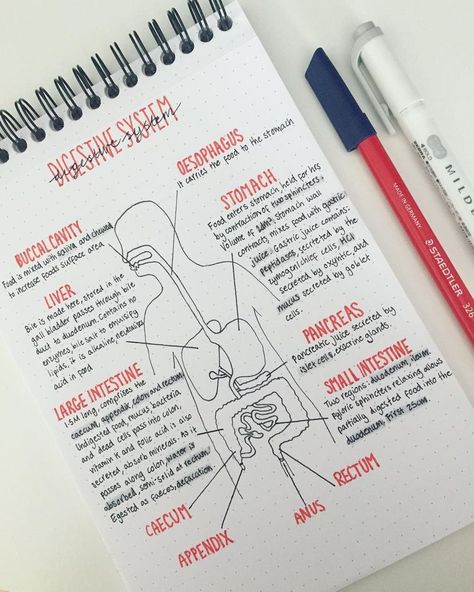 DIGESTIVE SYSTEM
digestive system
OESOPHAGUS
It carries the food to the stomach
STOMACH
Food enters stomach held for hrs
by contraction of two sphincters.
Volume of stomach wall
contracts, mixes food with gastric
juice. Gastric juice contains:
peptidases, secreted by the
zymogen/chief cells, HCl
secreted by oxyntic, and
mucus secreted by goblet
cells.
BUCCAL CAVITY
Food is mixed with saliva and chewed
to increase foods surface area
LIVER
Bile is made here, stored in the
gall bladder passes through bile
duct to duodenum. Contains no
enzymes, bile salt to emulsify
lipids, it is alkaline neutralize
acid in food
PANCREAS
Pancreatic juice secreted by
islet cells, exocrine glands.
SMALL INTESTINE
Two regions: duodenum, ileum.
Pyloric sphincters relaxing allows
partially digested food into the
duodenum, first 25cm.
LARGE INTESTINE
1.5m long, comprises the
caecum, appendix, colon and rectum.
Undigested food, mucus, bacteria
and dead cells pass into colon,
vitamin K and folic acid is also
secreted, absorb minerals. As it
passes along colon, water is
absorbed, semi-solid at rectum.
Egested as faeces, defacation.
CAECUM
APPENDIX
ANUS
RECTUM
MADE IN GERMANY
STAEDTLER
326
MILD